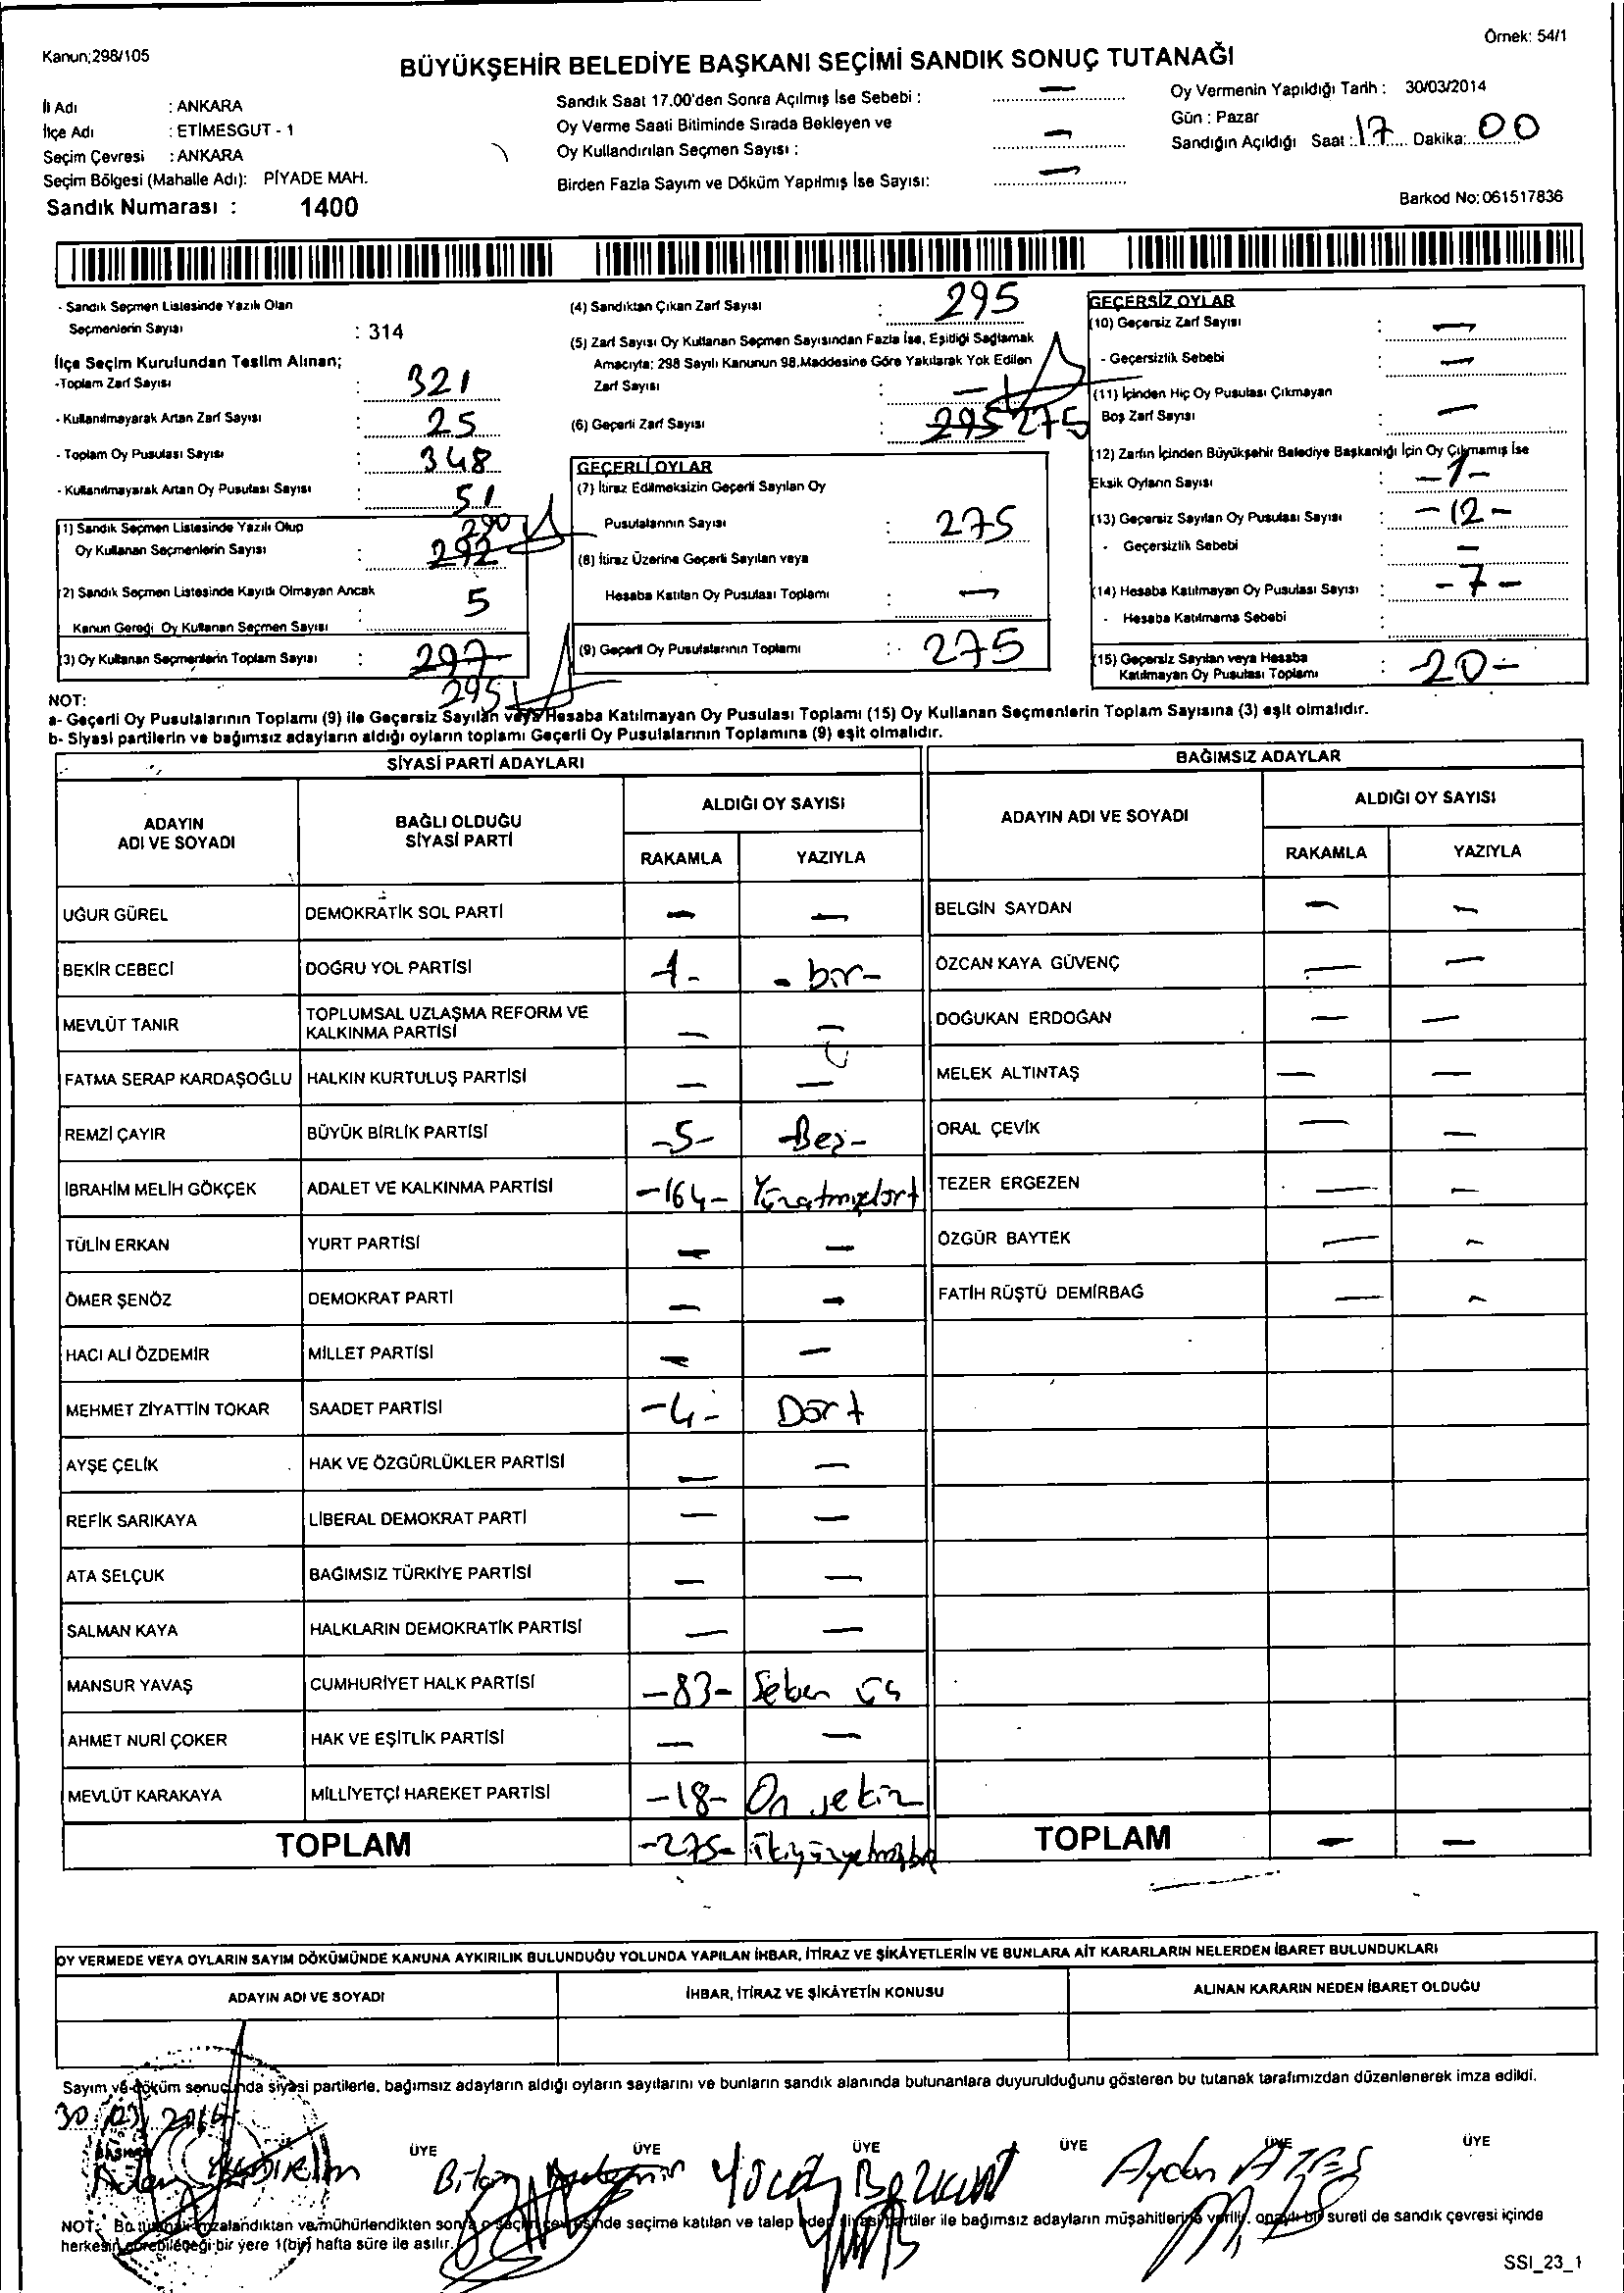 Kanun;298/105
Örnek: 54/1
BÜYÜKŞEHİR BELEDİYE BAŞKANI SEÇİMİ SANDIK SONUÇ TUTANAĞI
İl Adı : ANKARA
İlçe Adı : ETİMESGUT - 1
Seçim Çevresi : ANKARA
Seçim Bölgesi (Mahalle Adı): PİYADE MAH.
Sandık Numarası : 1400
Sandık Saat 17.00'den Sonra Açılmış İse Sebebi : —
Oy Verme Saati Bitiminde Sırada Bekleyen ve
Oy Kullandırılan Seçmen Sayısı : —
Birden Fazla Sayım ve Döküm Yapılmış İse Sayısı: —
Oy Vermenin Yapıldığı Tarih : 30/03/2014
Gün : Pazar
Sandığın Açıldığı Saat : 17 Dakika: 00
Barkod No: 061517836
- Sandık Seçmen Listesinde Yazılı Olan
Seçmenlerin Sayısı : 314
İlçe Seçim Kurulundan Teslim Alınan;
-Toplam Zarf Sayısı : 321
- Kullanılmayarak Artan Zarf Sayısı : 25
- Toplam Oy Pusulası Sayısı : 348
- Kullanılmayarak Artan Oy Pusulası Sayısı : 51
(1) Sandık Seçmen Listesinde Yazılı Olup 290
Oy Kullanan Seçmenlerin Sayısı : 292
(2) Sandık Seçmen Listesinde Kayıtlı Olmayan Ancak
Kanun Gereği Oy Kullanan Seçmen Sayısı : 5
(3) Oy Kullanan Seçmenlerin Toplam Sayısı : 297
295
(4) Sandıktan Çıkan Zarf Sayısı : 295
(5) Zarf Sayısı Oy Kullanan Seçmen Sayısından Fazla İse, Eşitliği Sağlamak
Amacıyla; 298 Sayılı Kanunun 98.Maddesine Göre Yakılarak Yok Edilen
Zarf Sayısı : —
(6) Geçerli Zarf Sayısı : 295 275
GEÇERLİ OYLAR
(7) İtiraz Edilmeksizin Geçerli Sayılan Oy
Pusulalarının Sayısı : 275
(8) İtiraz Üzerine Geçerli Sayılan veya
Hesaba Katılan Oy Pusulası Toplamı : —
(9) Geçerli Oy Pusulalarının Toplamı : 275
GEÇERSİZ OYLAR
(10) Geçersiz Zarf Sayısı : —
- Geçersizlik Sebebi : —
(11) İçinden Hiç Oy Pusulası Çıkmayan
Boş Zarf Sayısı : —
(12) Zarfın İçinden Büyükşehir Belediye Başkanlığı İçin Oy Çıkmamış İse
Eksik Oyların Sayısı : -1-
(13) Geçersiz Sayılan Oy Pusulası Sayısı : -12-
- Geçersizlik Sebebi : —
(14) Hesaba Katılmayan Oy Pusulası Sayısı : -7-
- Hesaba Katılmama Sebebi :
(15) Geçersiz Sayılan veya Hesaba
Katılmayan Oy Pusulası Toplamı : -20-
NOT:
a- Geçerli Oy Pusulalarının Toplamı (9) ile Geçersiz Sayılan veya Hesaba Katılmayan Oy Pusulası Toplamı (15) Oy Kullanan Seçmenlerin Toplam Sayısına (3) eşit olmalıdır.
b- Siyasi partilerin ve bağımsız adayların aldığı oyların toplamı Geçerli Oy Pusulalarının Toplamına (9) eşit olmalıdır.
SİYASİ PARTİ ADAYLARI
ADAYIN ADI VE SOYADI BAĞLI OLDUĞU SİYASİ PARTİ ALDIĞI OY SAYISI
RAKAMLA YAZIYLA
UĞUR GÜREL DEMOKRATİK SOL PARTİ — —
BEKİR CEBECİ DOĞRU YOL PARTİSİ 1- -bir-
MEVLÜT TANIR TOPLUMSAL UZLAŞMA REFORM VE KALKINMA PARTİSİ — —
FATMA SERAP KARDAŞOĞLU HALKIN KURTULUŞ PARTİSİ — —
REMZİ ÇAYIR BÜYÜK BİRLİK PARTİSİ -5- -Beş-
İBRAHİM MELİH GÖKÇEK ADALET VE KALKINMA PARTİSİ -164- Yüzatmışdört
TÜLİN ERKAN YURT PARTİSİ — —
ÖMER ŞENÖZ DEMOKRAT PARTİ — —
HACI ALİ ÖZDEMİR MİLLET PARTİSİ — —
MEHMET ZİYATTİN TOKAR SAADET PARTİSİ -4- Dört
AYŞE ÇELİK HAK VE ÖZGÜRLÜKLER PARTİSİ — —
REFİK SARIKAYA LİBERAL DEMOKRAT PARTİ — —
ATA SELÇUK BAĞIMSIZ TÜRKİYE PARTİSİ — —
SALMAN KAYA HALKLARIN DEMOKRATİK PARTİSİ — —
MANSUR YAVAŞ CUMHURİYET HALK PARTİSİ -83- Seksen üç
AHMET NURİ ÇOKER HAK VE EŞİTLİK PARTİSİ — —
MEVLÜT KARAKAYA MİLLİYETÇİ HAREKET PARTİSİ -18- On sekiz
TOPLAM -275-
BAĞIMSIZ ADAYLAR
ADAYIN ADI VE SOYADI ALDIĞI OY SAYISI
RAKAMLA YAZIYLA
BELGİN SAYDAN — —
ÖZCAN KAYA GÜVENÇ — —
DOĞUKAN ERDOĞAN — —
MELEK ALTINTAŞ — —
ORAL ÇEVİK — —
TEZER ERGEZEN — —
ÖZGÜR BAYTEK — —
FATİH RÜŞTÜ DEMİRBAĞ — —
TOPLAM — —
OY VERMEDE VEYA OYLARIN SAYIM DÖKÜMÜNDE KANUNA AYKIRILIK BULUNDUĞU YOLUNDA YAPILAN İHBAR, İTİRAZ VE ŞİKÂYETLERİN VE BUNLARA AİT KARARLARIN NELERDEN İBARET BULUNDUKLARI
ADAYIN ADI VE SOYADI İHBAR, İTİRAZ VE ŞİKÂYETİN KONUSU ALINAN KARARIN NEDEN İBARET OLDUĞU
Sayım ve döküm sonucunda siyasi partilerle, bağımsız adayların aldığı oyların sayılarını ve bunların sandık alanında bulunanlara duyurulduğunu gösteren bu tutanak tarafımızdan düzenlenerek imza edildi.
30/03/2014
BAŞKAN ÜYE ÜYE ÜYE ÜYE ÜYE ÜYE
Yücel Bozkurt Aydın ATEŞ
NOT: Bu tutanak imzalandıktan ve mühürlendikten sonra o seçim çevresinde seçime katılan ve talep eden siyasi partiler ile bağımsız adayların müşahitlerine verilir, onaylı bir sureti de sandık çevresi içinde
herkesin görebileceği bir yere 1(bir) hafta süre ile asılır.
SSI_23_1